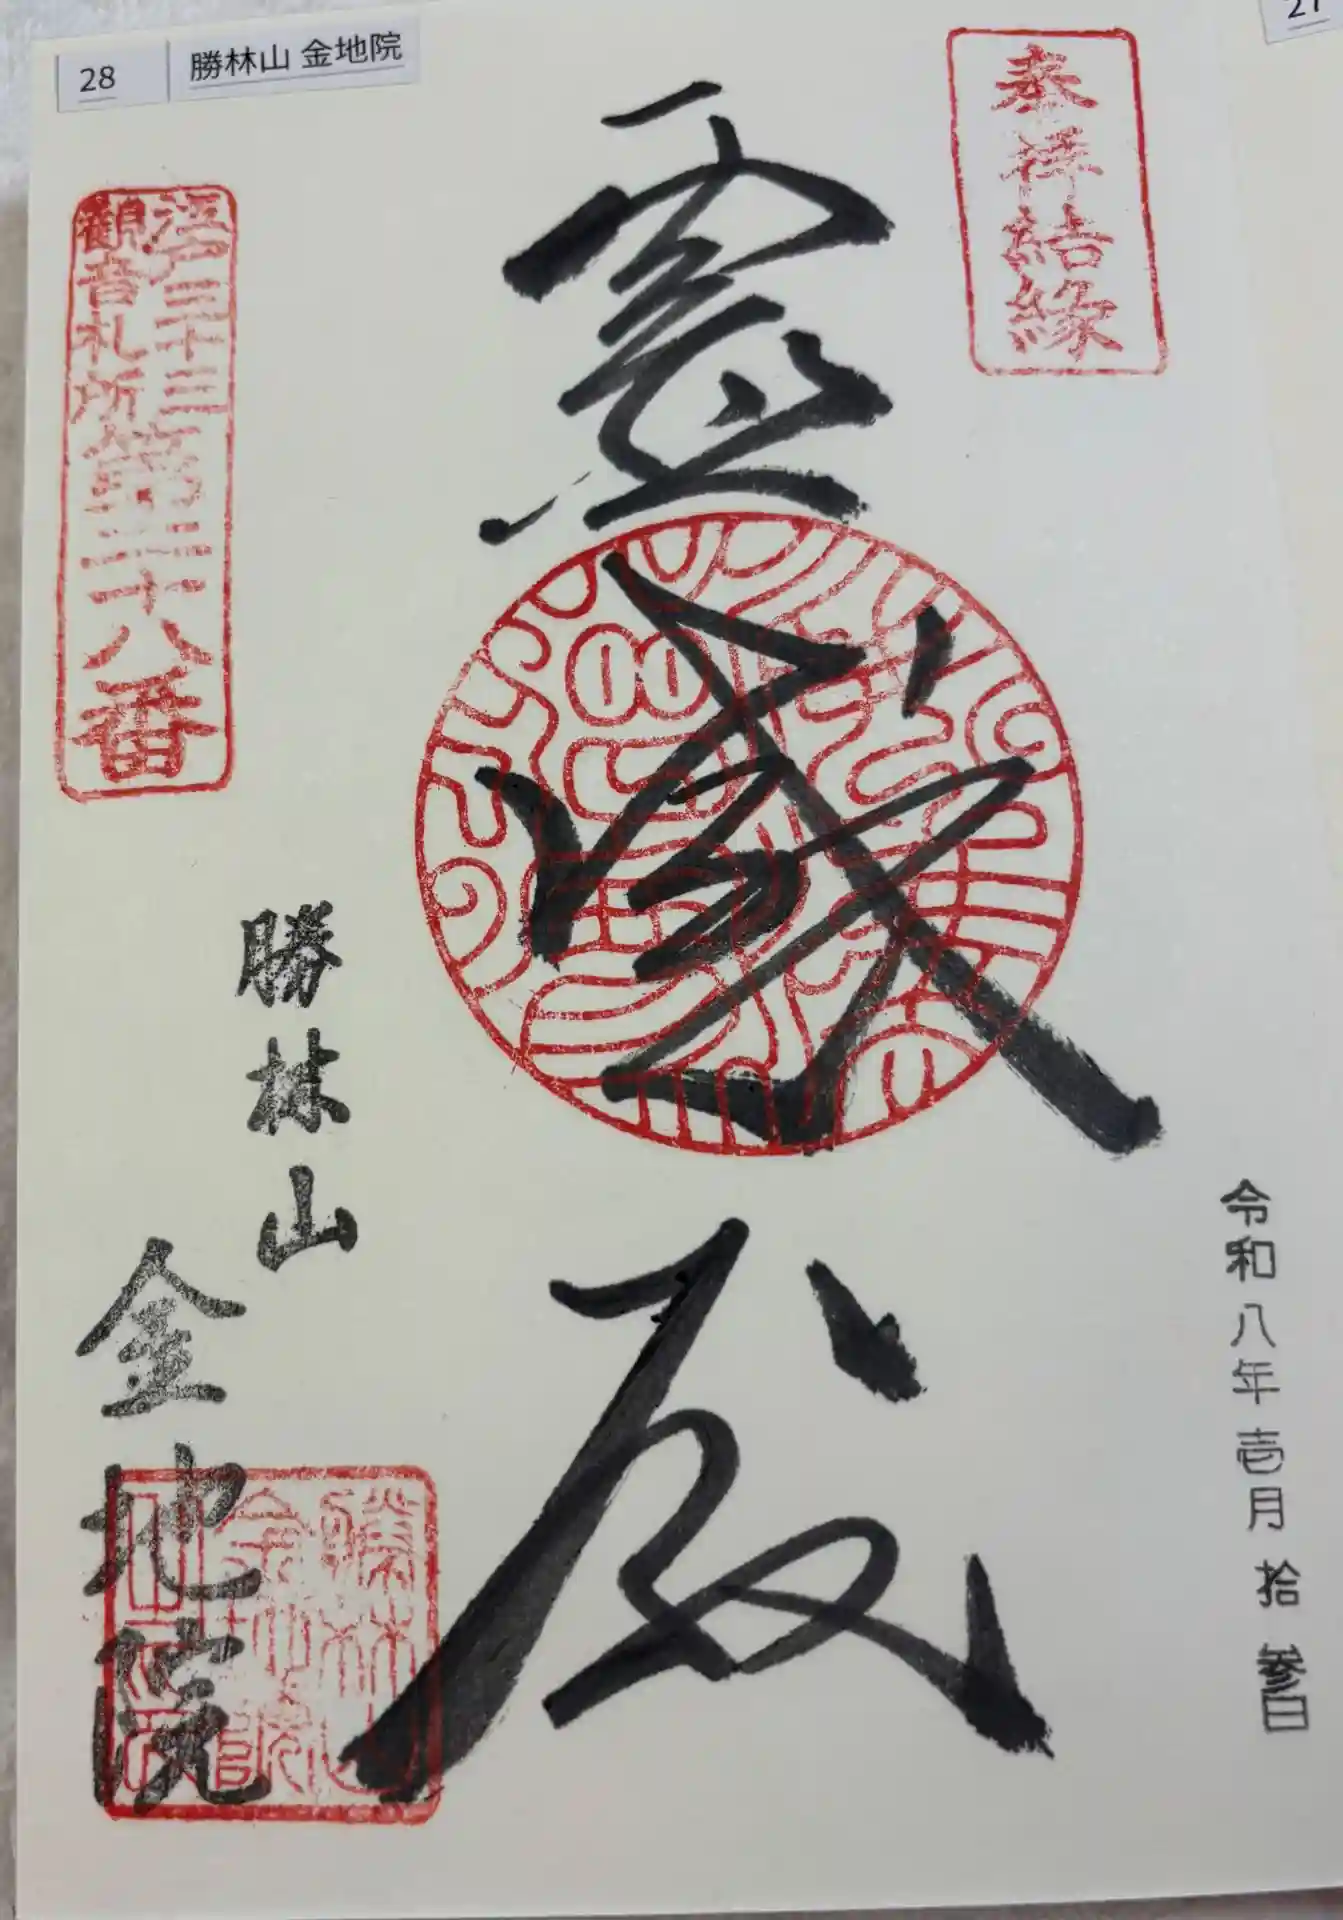 28 勝林山 金地院
27
奉拝結縁
令和八年壱月拾参日
霊感殿
江戸三十三
観音札所
第二十八番
勝林山
金地院
勝林山
金地院